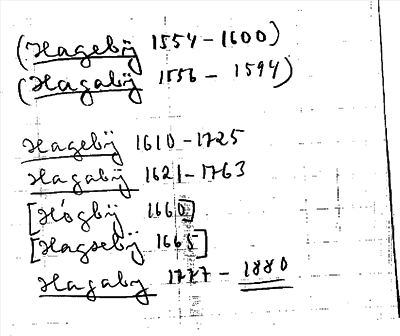 (Hageby̎ 1554-1600)
(Hagaby̎ 1556 - 1594)
Hageby̎ 1610-1725
Hagaby̎ 1621-1763
[Högby̎ 1660]
[Hagseby̎ 1665]
Hagaby 1777 - 1880